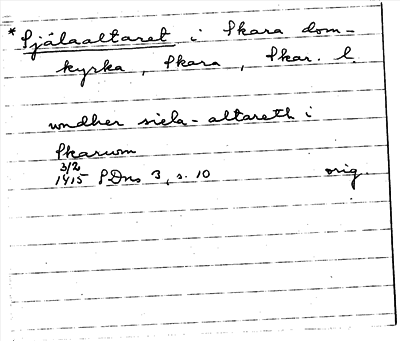 * Själaaltaret i Skara dom-
kyrka, Skara, Skar. l.
wndher siela-altareth i
Skarwm
3/2
1415 SDns 3, s. 10 orig.